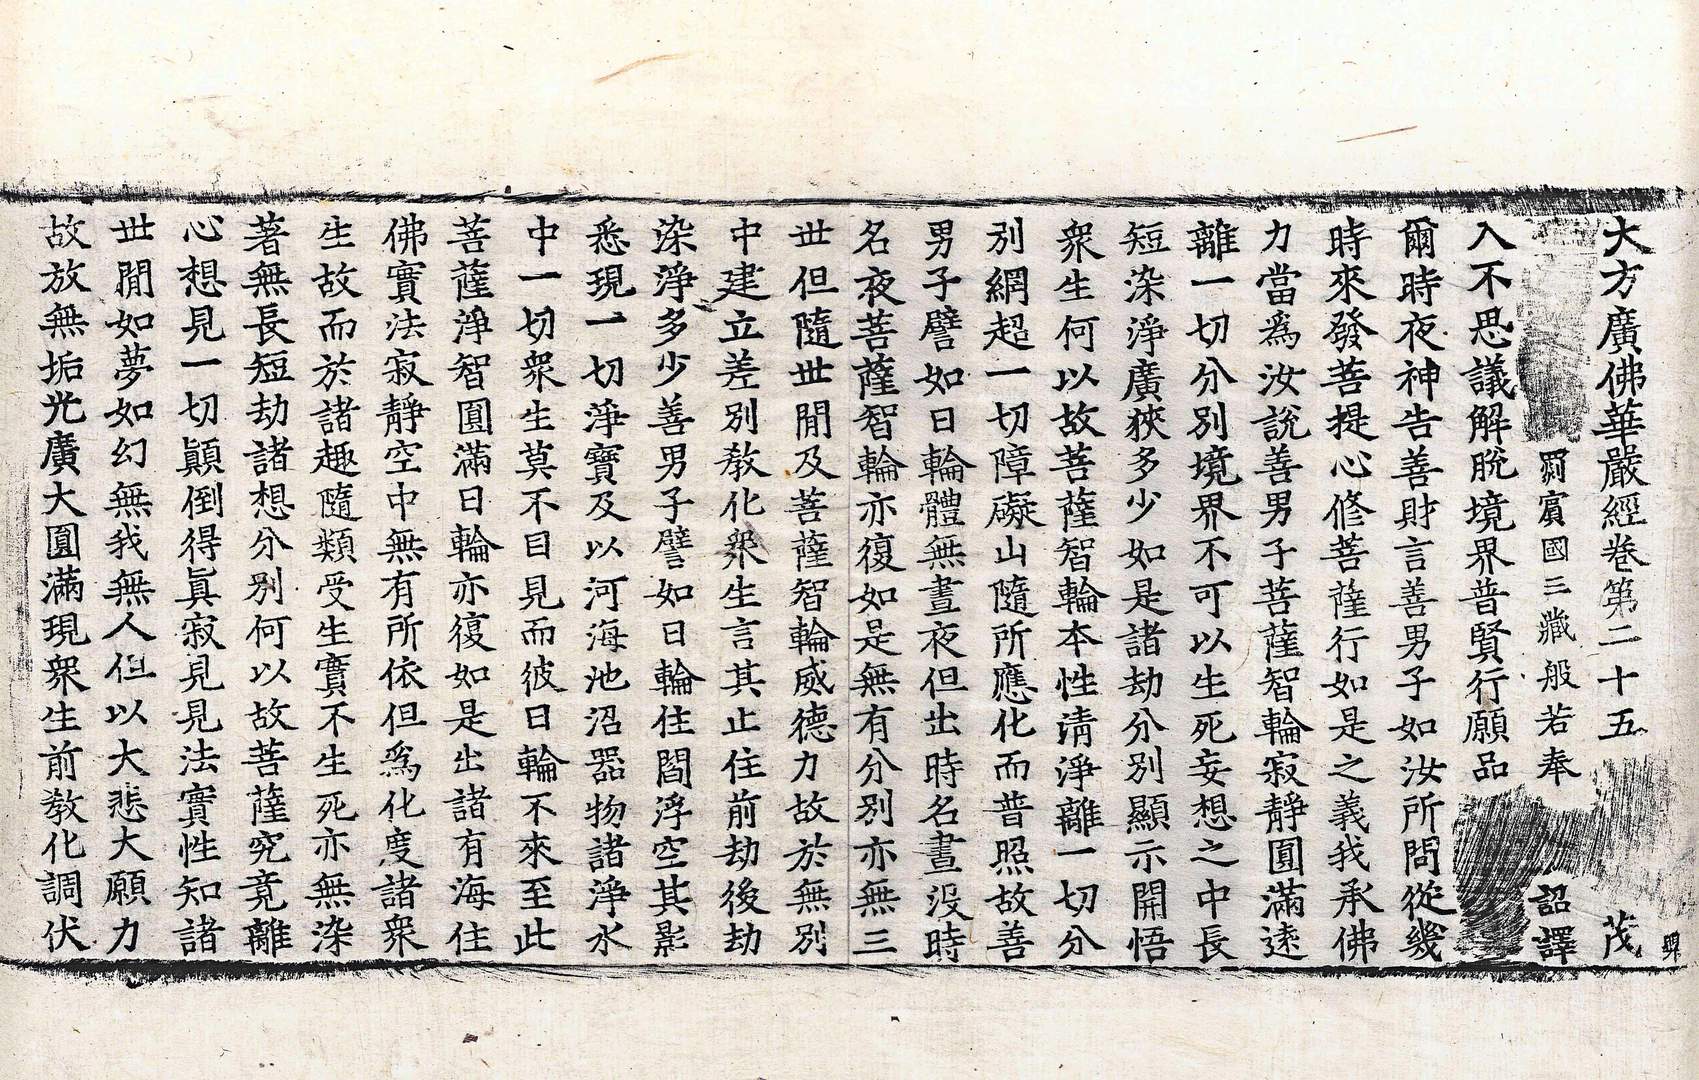 大方廣佛華嚴經卷第二十五 茂
罽賓國三藏般若奉 詔譯
入不思議解脫境界普賢行願品
爾時夜神告善財言善男子如汝所問從幾
時來發菩提心修菩薩行如是之義我承佛
力當爲汝說善男子菩薩智輪寂靜圓滿遠
離一切分別境界不可以生死妄想之中長
短染淨廣狹多少如是諸劫分別顯示開悟
衆生何以故菩薩智輪本性淸淨離一切分
別網超一切障礙山隨所應化而普照故善
男子譬如日輪體無晝夜但出時名晝沒時
名夜菩薩智輪亦復如是無有分別亦無三
世但隨世閒及菩薩智輪威德力故於無別
中建立差別敎化衆生言其止住前劫後劫
染淨多少善男子譬如日輪住閻浮空其影
悉現一切淨寶及以河海池沼器物諸淨水
中一切衆生莫不目見而彼日輪不來至此
菩薩淨智圓滿日輪亦復如是出諸有海住
佛實法寂靜空中無有所依但爲化度諸衆
生故而於諸趣隨類受生實不生死亦無染
著無長短劫諸想分別何以故菩薩究竟離
心想見一切顚倒得眞寂見見法實性知諸
世閒如夢如幻無我無人但以大悲大願力
故放無垢光廣大圓滿現衆生前敎化調伏